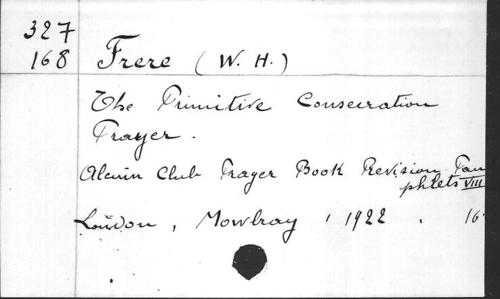 327
168 Frere (W. H.)
The Primitive Consecration
Prayer.
Alcuin Club Prayer Book Revision Pam
phlets VIII
London, Mowbray, 1922. 16